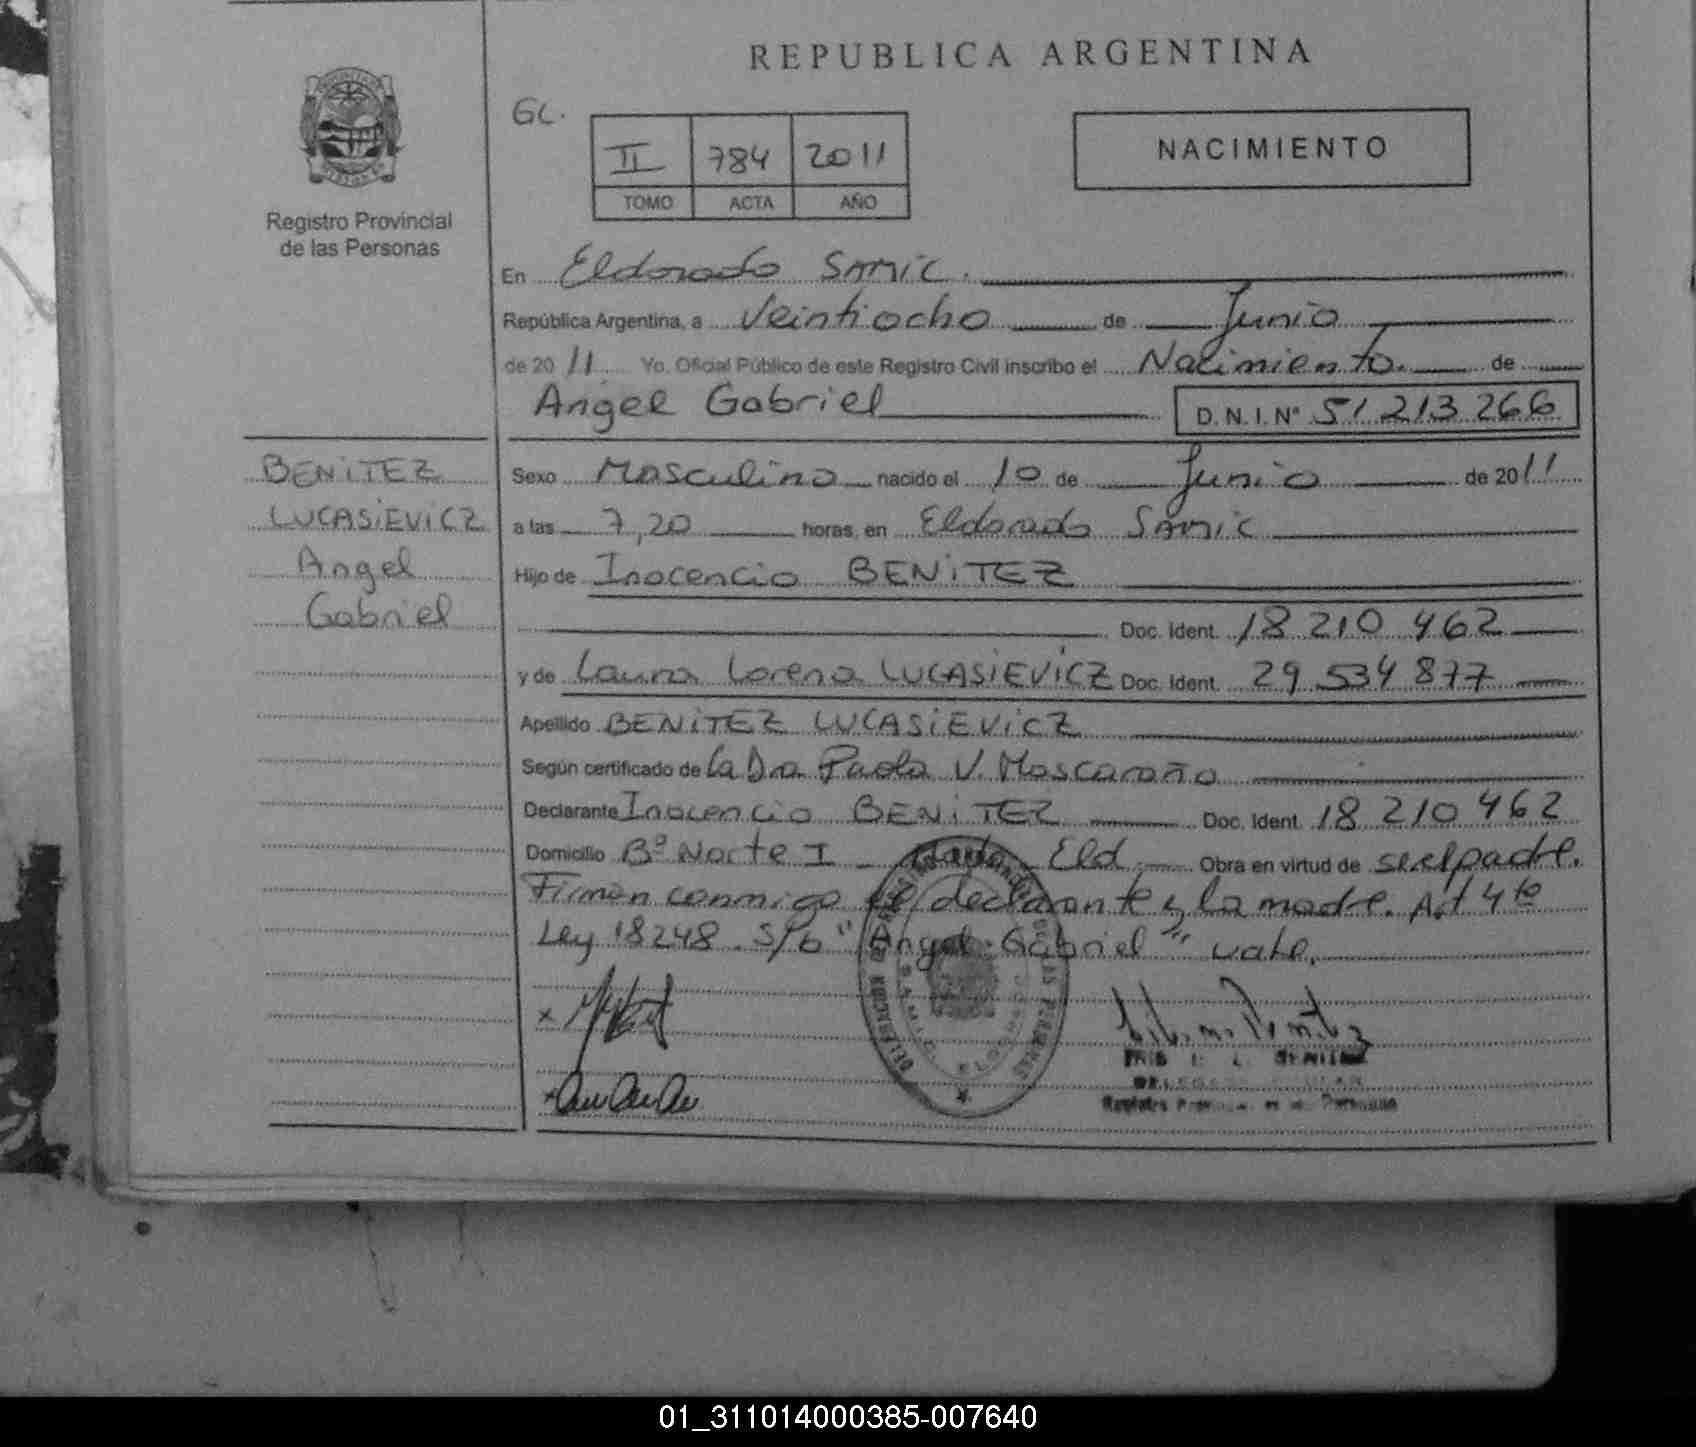 REPUBLICA ARGENTINA
GL.
II 784 2011
TOMO ACTA AÑO
NACIMIENTO
Registro Provincial
de las Personas
En Eldorado Samic.
República Argentina, a Veintiocho de Junio
de 2011 Yo. Oficial Público de este Registro Civil inscribo el Nacimiento. de
Angel Gabriel D.N.I.Nº 51 213 266
BENITEZ
LUCASIEVICZ
Angel
Gabriel
Sexo Masculino nacido el 10 de Junio de 2011
a las 7,20 horas, en Eldorado Samic
Hijo de Inocencio BENITEZ
Doc. Ident. 18 210 462
y de Laura Lorena LUCASIEVICZ Doc. Ident. 29 534 877
Apellido BENITEZ LUCASIEVICZ
Según certificado de la Dra Paola V. Moscaroño
Declarante Inocencio BENITEZ Doc. Ident. 18 210 462
Domicilio Bº Norte I Eld. Obra en virtud de ser el padre.
Firman conmigo el declarante y la madre. Art 4to
Ley 18248. S/b "Angel Gabriel" vale.
Registro
01_311014000385-007640